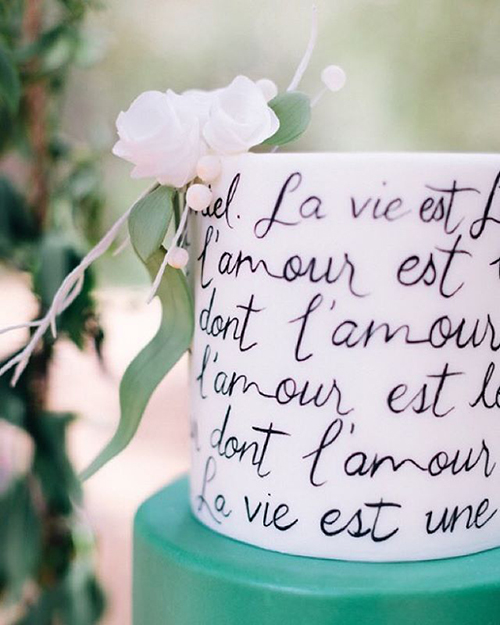 iel. La vie est L
l'amour est
dont l'amour
l'amour est le
dont l'amour
La vie est une